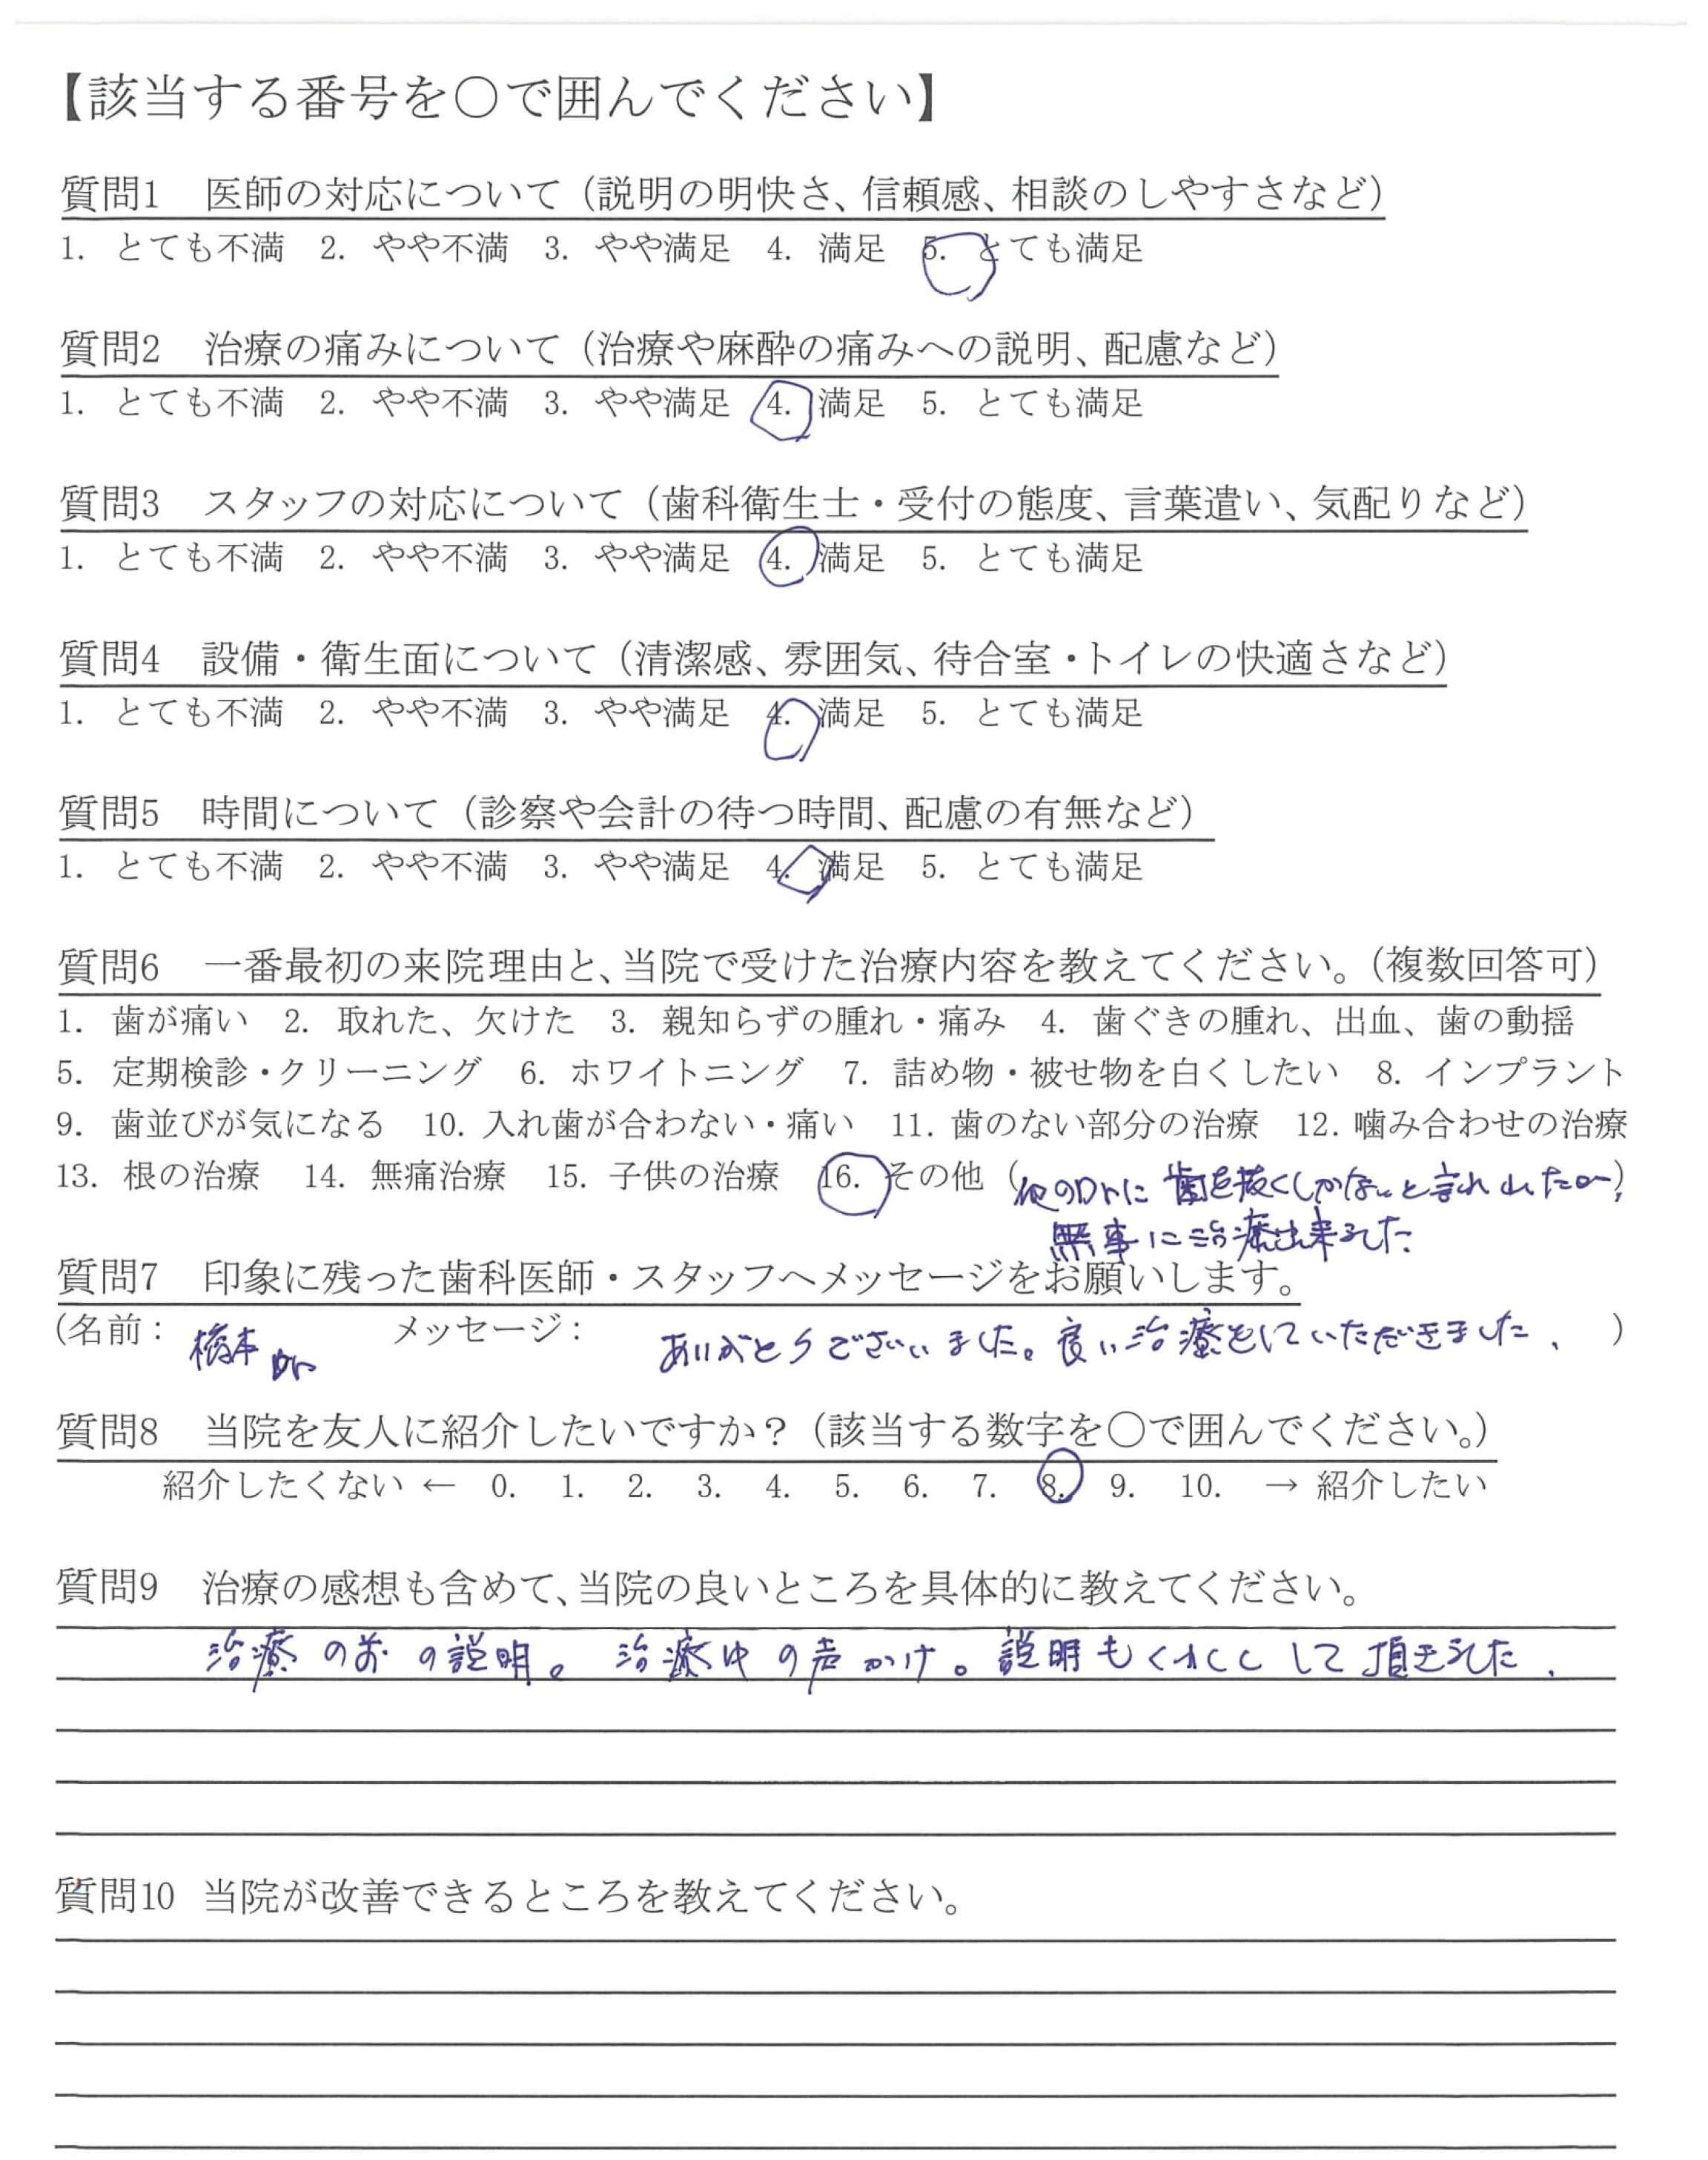 【該当する番号を○で囲んでください】
質問1 医師の対応について（説明の明快さ、信頼感、相談のしやすさなど）
1. とても不満 2. やや不満 3. やや満足 4. 満足 5. とても満足
質問2 治療の痛みについて（治療や麻酔の痛みへの説明、配慮など）
1. とても不満 2. やや不満 3. やや満足 4. 満足 5. とても満足
質問3 スタッフの対応について（歯科衛生士・受付の態度、言葉遣い、気配りなど）
1. とても不満 2. やや不満 3. やや満足 4. 満足 5. とても満足
質問4 設備・衛生面について（清潔感、雰囲気、待合室・トイレの快適さなど）
1. とても不満 2. やや不満 3. やや満足 4. 満足 5. とても満足
質問5 時間について（診察や会計の待つ時間、配慮の有無など）
1. とても不満 2. やや不満 3. やや満足 4. 満足 5. とても満足
質問6 一番最初の来院理由と、当院で受けた治療内容を教えてください。（複数回答可）
1. 歯が痛い 2. 取れた、欠けた 3. 親知らずの腫れ・痛み 4. 歯ぐきの腫れ、出血、歯の動揺
5. 定期検診・クリーニング 6. ホワイトニング 7. 詰め物・被せ物を白くしたい 8. インプラント
9. 歯並びが気になる 10. 入れ歯が合わない・痛い 11. 歯のない部分の治療 12. 噛み合わせの治療
13. 根の治療 14. 無痛治療 15. 子供の治療 16. その他（他のDrに歯を抜くしかないと言われました）
無事に治療出来ました.
質問7 印象に残った歯科医師・スタッフへメッセージをお願いします。
（名前： 橋本Dr メッセージ： ありがとうございました。良い治療をしていただきました. ）
質問8 当院を友人に紹介したいですか？（該当する数字を○で囲んでください。）
紹介したくない ← 0. 1. 2. 3. 4. 5. 6. 7. 8. 9. 10. → 紹介したい
質問9 治療の感想も含めて、当院の良いところを具体的に教えてください。
治療の前の説明。治療中の声かけ。説明もくわしくして頂きました.
質問10 当院が改善できるところを教えてください。